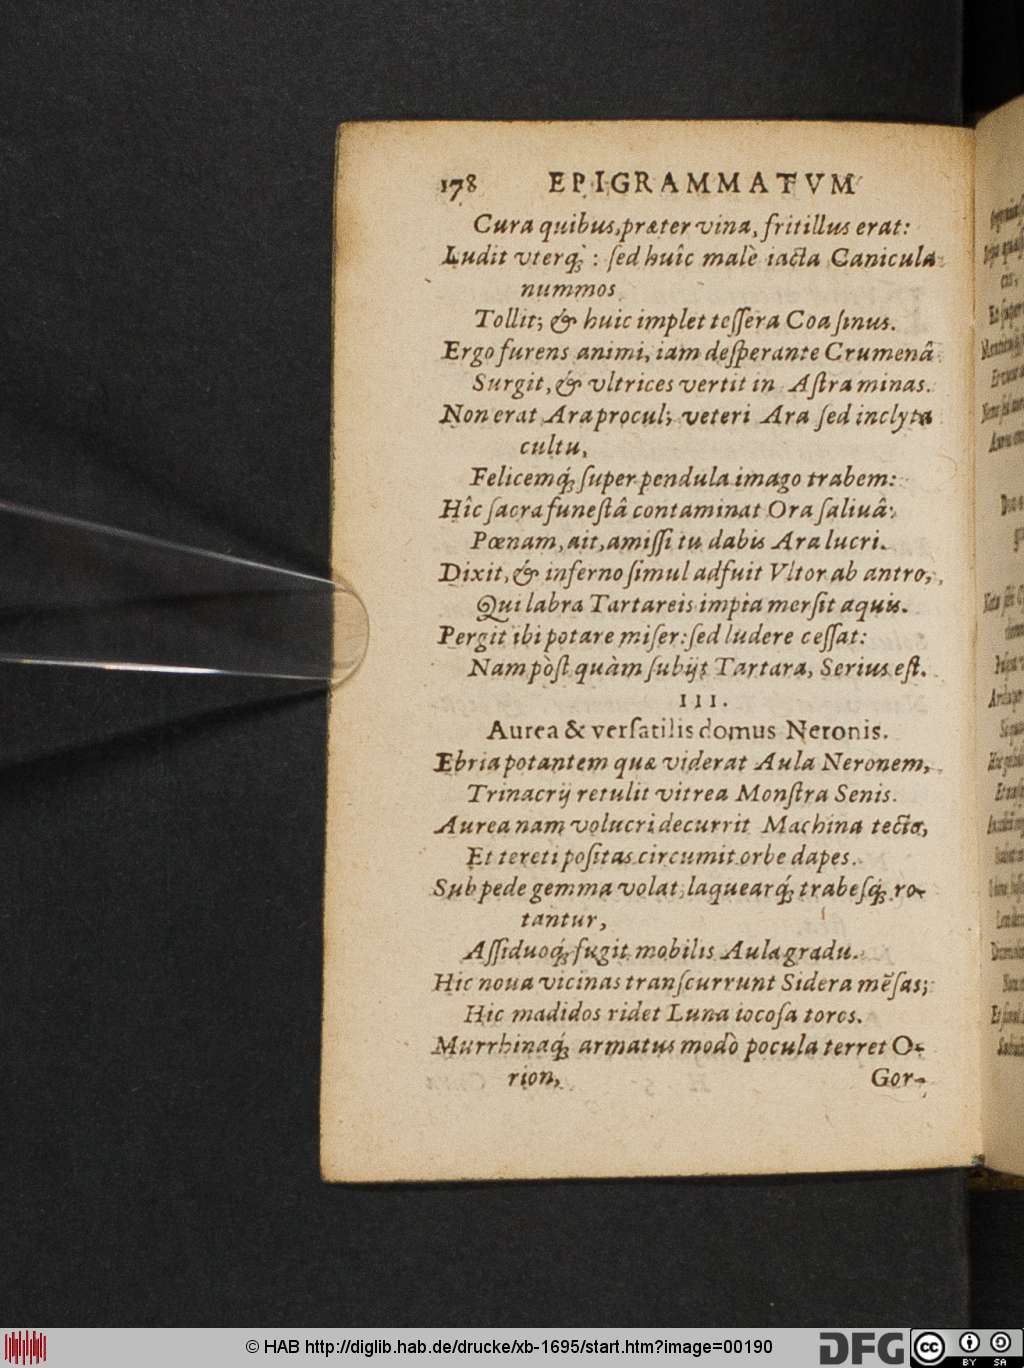 178 EPIGRAMMATVM
Cura quibus, præter vina, fritillus erat:
Ludit vterq́; : ſed huîc malè iacta Canicula
nummos
Tollit; & huic implet teſſera Coa ſinus.
Ergo furens animi, iam deſperante Crumenâ
Surgit, & vltrices vertit in Aſtra minas.
Non erat Ara procul; veteri Ara ſed inclyta
cultu,
Felicemq́; ſuper pendula imago trabem:
Hîc ſacra funeſtâ contaminat Ora ſaliuâ:
Pœnam, ait, amiſſi tu dabis Ara lucri.
Dixit, & inferno ſimul adfuit Vltor ab antro,
Qui labra Tartareis impia merſit aquis.
Pergit ibi potare miſer: ſed ludere ceſſat:
Nam pòſt quàm ſubijt Tartara, Serius eſt.
III.
Aurea & verſatilis domus Neronis.
Ebria potantem quæ viderat Aula Neronem,
Trinacrij retulit vitrea Monſtra Senis.
Aurea nam volucri decurrit Machina tecto,
Et tereti poſitas circumit orbe dapes.
Sub pede gemma volat, laquearq́; trabeſq́; ro-
tantur,
Aſſiduoq́; fugit mobilis Aula gradu.
Hic noua vicinas tranſcurrunt Sidera mēſas;
Hic madidos ridet Luna iocoſa toros.
Murrhinaq́; armatus modò pocula terret O-
rion,
Gor-
© HAB http://diglib.hab.de/drucke/xb-1695/start.htm?image=00190
DFG
cc BY SA